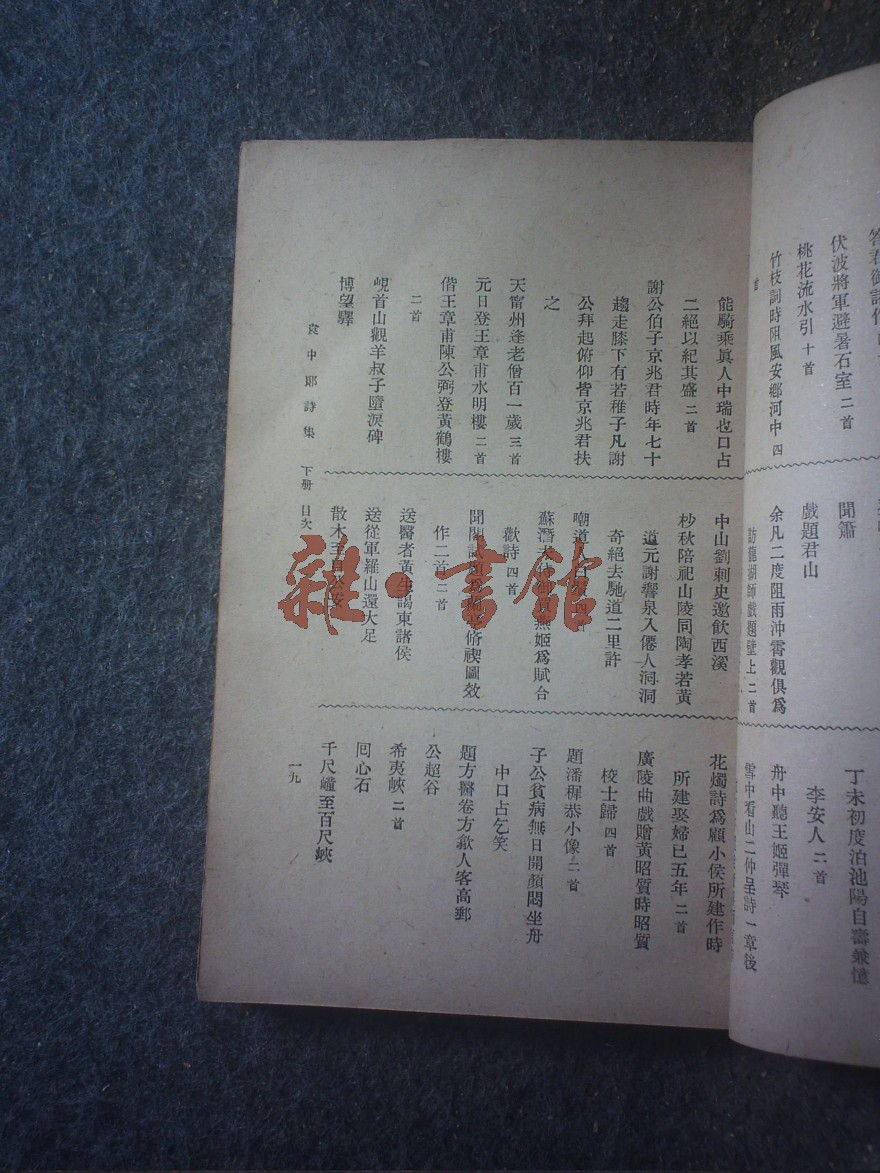 伏波將軍避暑石室 二首
桃花流水引 十首
竹枝詞時阻風安鄉河中 四
首
聞簫
戲題君山
余凡二度阻雨沖霄觀俱爲
訪龍湖師戲題壁上 二首
丁未初度泊池陽自壽兼憶
李安人 二首
舟中聽王姬彈琴
雪中看山二仲呈詩一章後
能騎乘眞人中瑞也口占
二絕以紀其盛 二首
謝公伯子京兆君時年七十
趨走膝下有若稚子凡謝
公拜起俯仰皆京兆君扶
之
天甯州逢老僧百一歲 三首
元日登王章甫水明樓 二首
偕王章甫陳公弼登黃鶴樓
二首
峴首山觀羊叔子墮淚碑
博望驛
中山劉刺史邀飲西溪
杪秋陪祀山陵同陶孝若黃
道元謝響泉入僊人洞洞
奇絕去馳道二里許
嘲道人 四首
蘇潛夫 無姬爲賦台
歡詩 四首
聞 脩禊圖效
作二首 二首
送醫者黃生謁東諸侯
送從軍羅山還大足
散木至自公安
花燭詩爲顧小侯所建作時
所建娶婦已五年 二首
廣陵曲戲贈黃昭質時昭質
校士歸 四首
題潘穉恭小像 二首
子公貧病無日開顏悶坐舟
中口占乞笑
題方醫卷方歙人客高郵
公超谷
希夷峽 二首
囘心石
千尺㠉至百尺峽
袁中郎詩集 下册 目次
一九
雜·書館